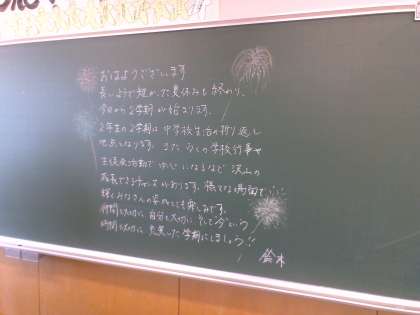 おはようございます
長いようで短かった夏休みも終わり、
今日から2学期が始まります。
2年生の2学期は中学校生活の折り返し
地点となります。また多くの学校行事や
生徒会活動で中心になるなど沢山の
成長できるチャンスがあります。様々な場面で
輝くみなさんの姿がとても楽しみです。
仲間を大切に、自分を大切に そして今という
時間を大切に 充実した学期にしましょう!!
鈴木